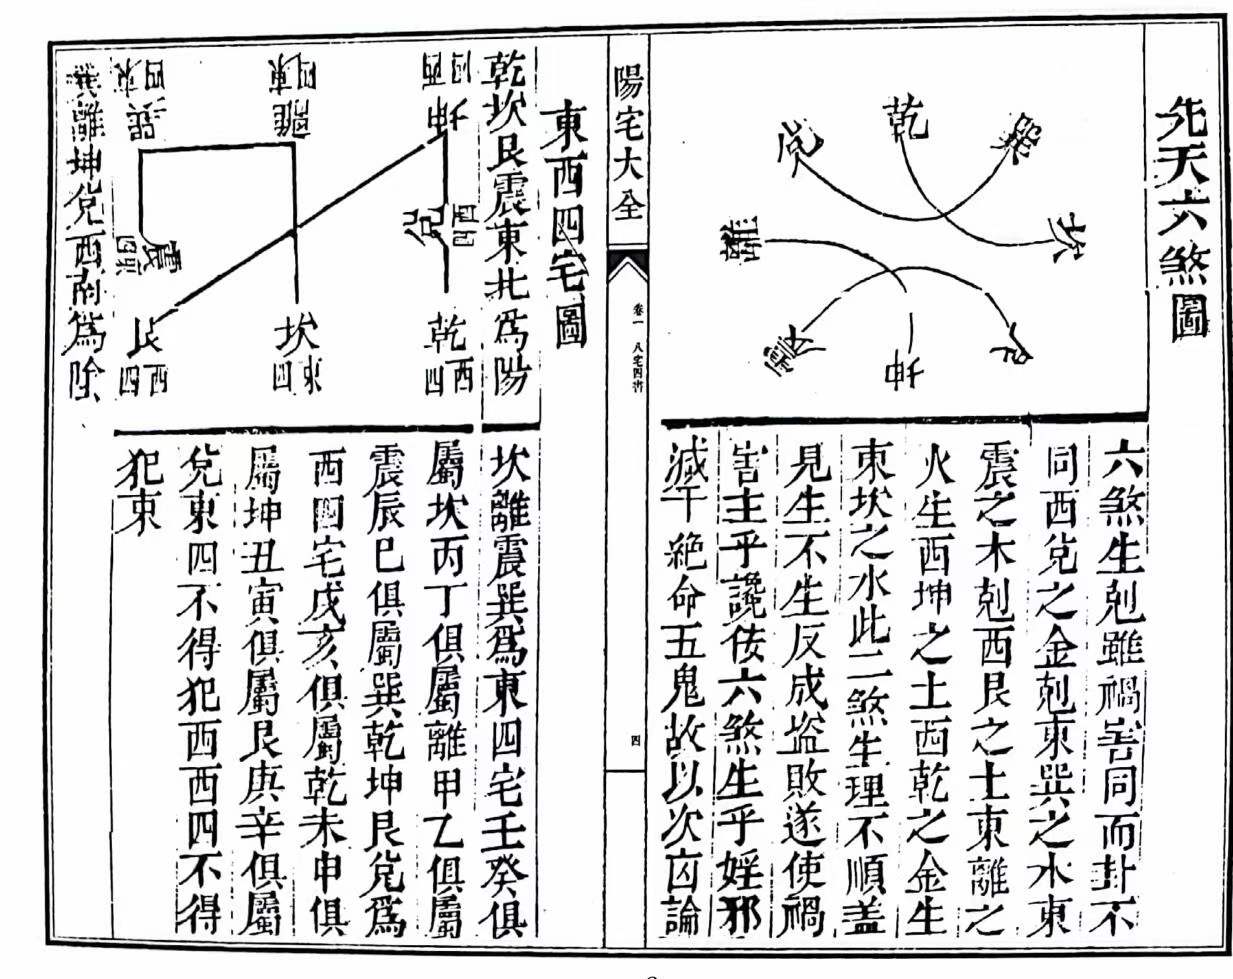 先天六煞圖
巽
乾
兌
坎
離
艮
坤
震
六煞生剋雖禍害同而卦不
同西兌之金剋東巽之水東
震之木剋西艮之土東離之
火生西坤之土西乾之金生
東坎之水此二煞生理不順盖
見生不生反成盗敗遂使禍
害主乎讒佞六煞生乎婬邪
滅于絕命五鬼故以次㐫論
陽宅大全
卷一 八宅四書
四
東西四宅圖
乾坎艮震東北爲陽
坤
西四
兌
西四
乾
西四
離
東四
坎
東四
巽
東四
震
東四
艮
西四
巽離坤兌西南爲陰
坎離震巽爲東四宅壬癸俱
屬坎丙丁俱屬離甲乙俱屬
震辰巳俱屬巽乾坤艮兌爲
西四宅戌亥俱屬乾未申俱
屬坤丑寅俱屬艮庚辛俱屬
兌東四不得犯西西四不得
犯東